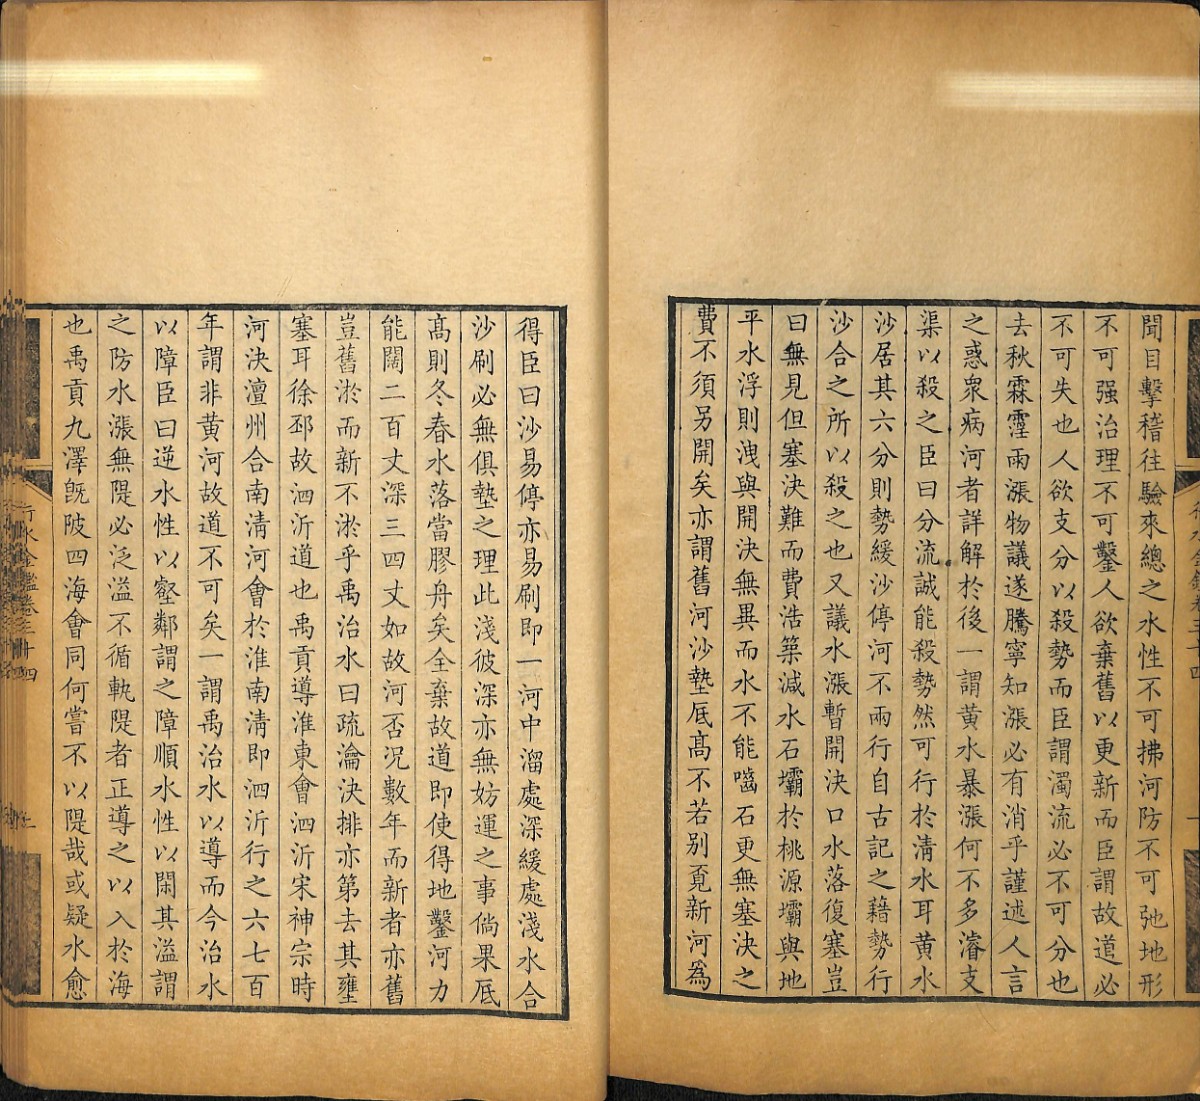 聞目擊稽往驗來總之水性不可拂河防不可弛地形
不可强治理不可鑿人欲棄舊以更新而臣謂故道必
不可失也人欲支分以殺勢而臣謂濁流必不可分也
去秋霖霪雨漲物議遂騰寧知漲必有消乎謹述人言
之惑衆病河者詳解於後一謂黃水暴漲何不多濬支
渠以殺之臣曰分流誠能殺勢然可行於清水耳黃水
沙居其六分則勢緩沙停河不兩行自古記之藉勢行
沙合之所以殺之也又議水漲暫開決口水落復塞豈
曰無見但塞決難而費浩築減水石壩於桃源壩與地
平水浮則洩與開決無異而水不能嚙石更無塞決之
費不須另開矣亦謂舊河沙墊厎高不若别覔新河爲
得臣曰沙易停亦易刷即一河中溜處深緩處淺水合
沙刷必無俱墊之理此淺彼深亦無妨運之事倘果厎
高則冬春水落當膠舟矣全棄故道即使得地鑿河力
能闊二百丈深三四丈如故河否況數年而新者亦舊
豈舊淤而新不淤乎禹治水曰疏瀹決排亦第去其壅
塞耳徐邳故泗沂道也禹貢導淮東會泗沂宋神宗時
河決澶州合南清河會於淮南清即泗沂行之六七百
年謂非黃河故道不可矣一謂禹治水以導而今治水
以障臣曰逆水性以壑鄰謂之障順水性以閑其溢謂
之防水漲無隄必泛溢不循軌隄者正導之以入於海
也禹貢九澤旣陂四海會同何嘗不以隄哉或疑水愈
行水金鑑卷三十四